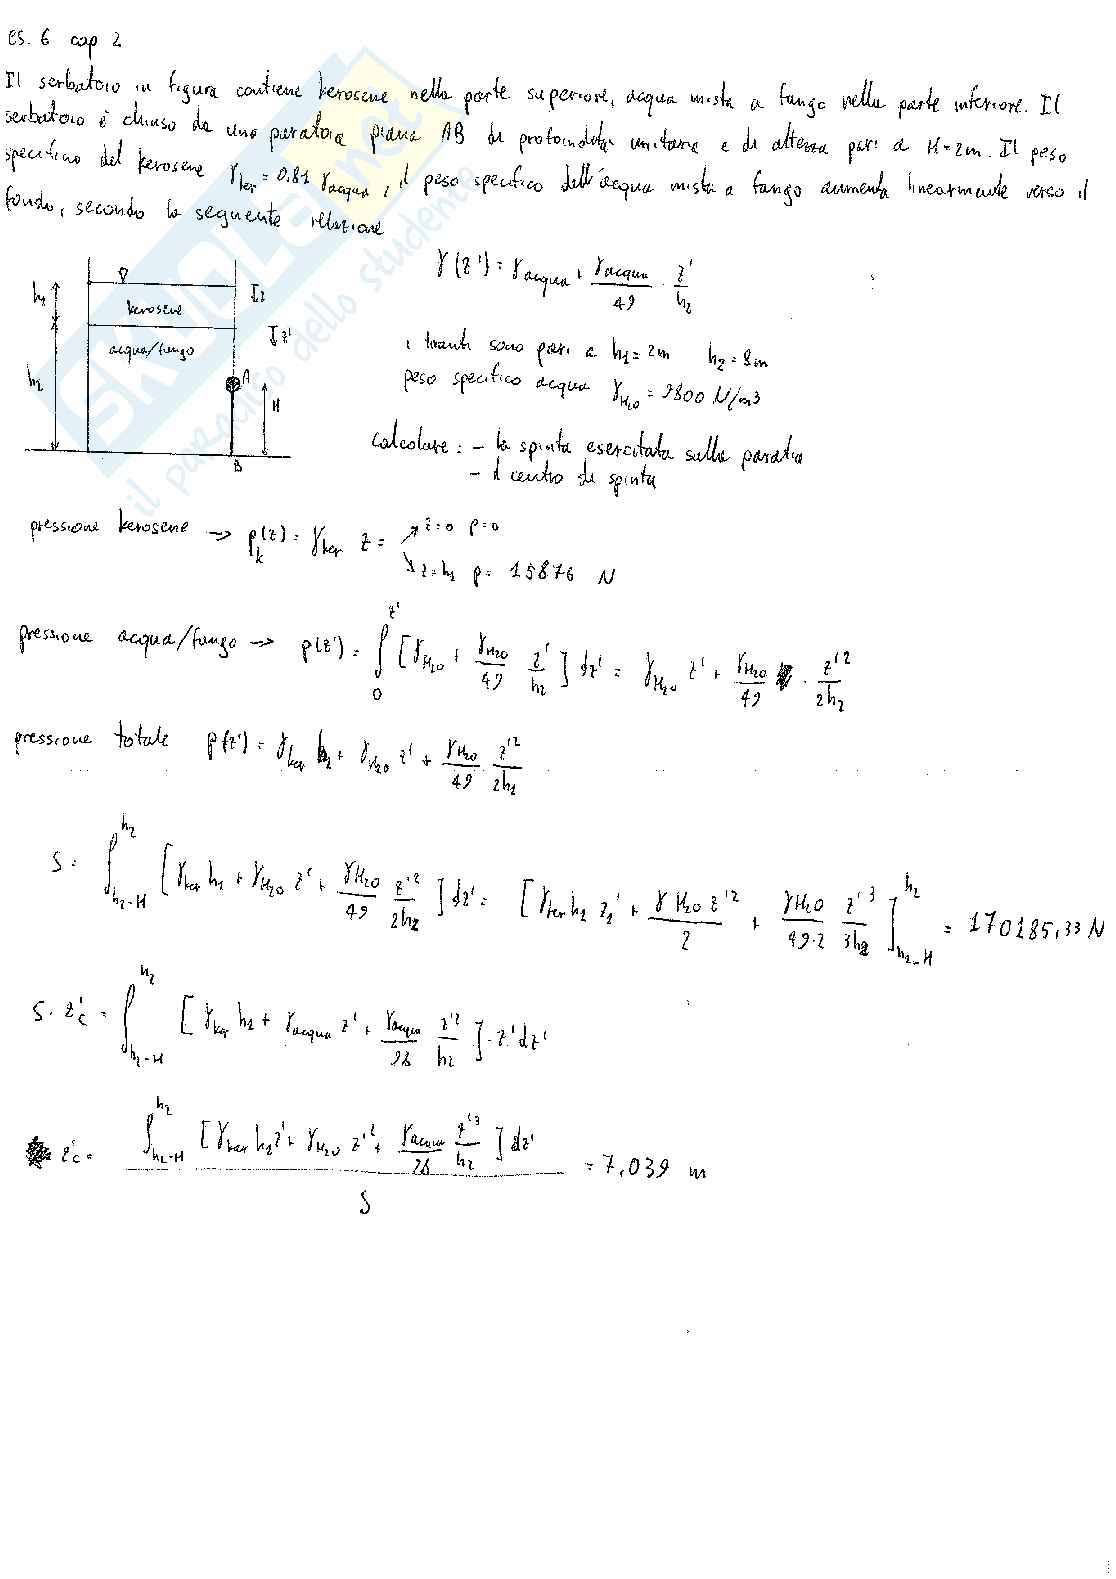 es. 6 cap 2
Il serbatoio in figura contiene kerosene nella parte superiore, acqua mista a fango nella parte inferiore. Il
serbatoio è chiuso da una paratoia piana AB di profondità unitaria e di altezza pari a H=2m. Il peso
specifico del kerosene γker = 0.81 γacqua, il peso specifico dell'acqua mista a fango aumenta linearmente verso il
fondo, secondo la seguente relazione
γ(z') = γacqua + γacqua/49 · z'/h2
h1
kerosene
z
acqua/fango
z'
h2
A
H
B
i tiranti sono pari a h1 = 2m h2 = 8m
peso specifico acqua γH2O = 9800 N/m3
calcolare: - la spinta esercitata sulla paratia
- il centro di spinta
pressione kerosene → pk(z) = γker z =
z=0 p=0
z=h1 p= 15876 N
pressione acqua/fango → p(z') = ∫0^z' [γH2O + γH2O/49 z'/h2] dz' = γH2O z' + γH2O/49 · z'2/2h2
pressione totale p(z') = γker h1 + γH2O z' + γH2O/49 · z'2/2h2
S = ∫h2-H^h2 [γker h1 + γH2O z' + γH2O/49 z'2/2h2] dz' = [γker h1 z' + γH2O z'2/2 + γH2O/49·2 z'3/3h2]h2-H^h2 = 170185,33 N
S · z'c = ∫h2-H^h2 [γker h1 + γacqua z' + γacqua/98 z'2/h2] · z' dz'
z'c = ∫h2-H^h2 [γker h1 z' + γH2O z'2 + γacqua/98 z'3/h2] dz' / S = 7,039 m
SKUOLA.net
il paradiso dello studente